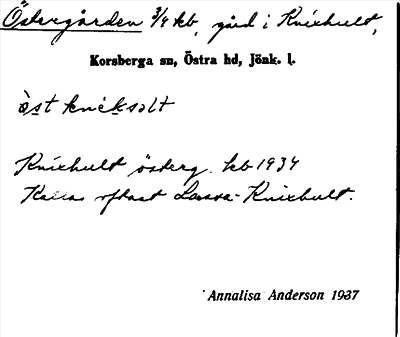 Östergården 3/4 kb, gård i Knixhult,
Korsberga sn, Östra hd, Jönk. l.
öst knicksalt
Knixhult österg. kb 1934
Kallas oftast Lassa-Knixhult.
Annalisa Anderson 1937